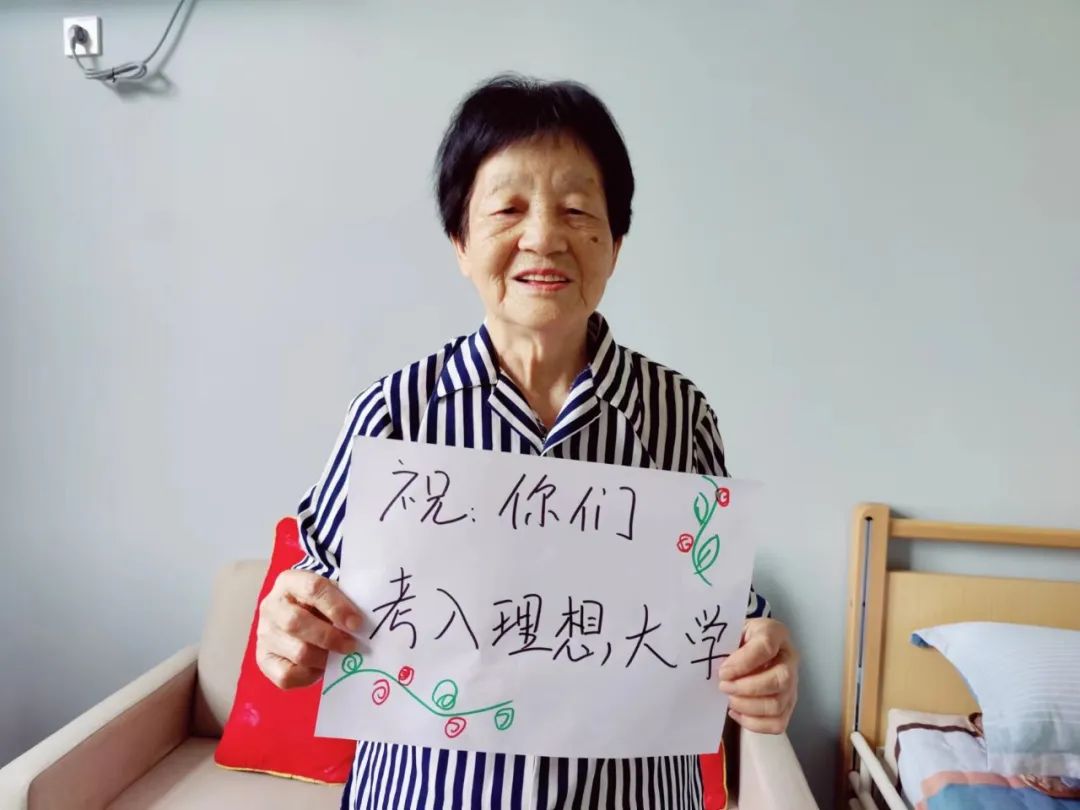 祝:你们
考入理想大学